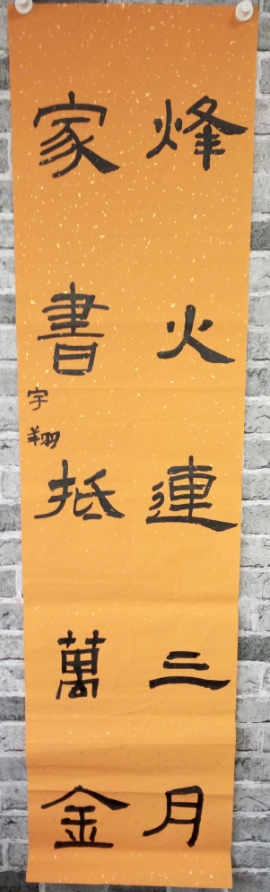 烽火連三月
家書抵萬金
宇翔